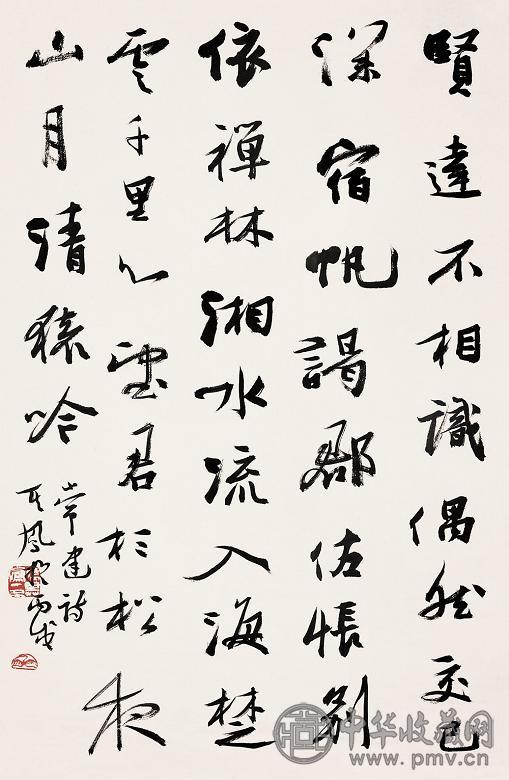 賢達不相識偶然交已
深宿帆謁郡佐悵別
依禪林湘水流入海楚
雲千里心望君杉松夜
山月清猿吟
常建詩
鳳於丙戌
中华收藏网
www.pmv.cn